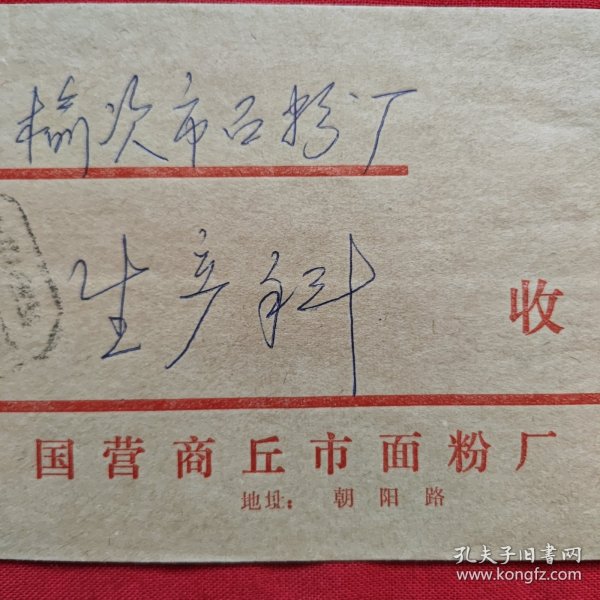 榆次市面粉厂
生产科
收
国营商丘市面粉厂
地址：朝阳路
孔夫子旧书网
www.kongfz.com